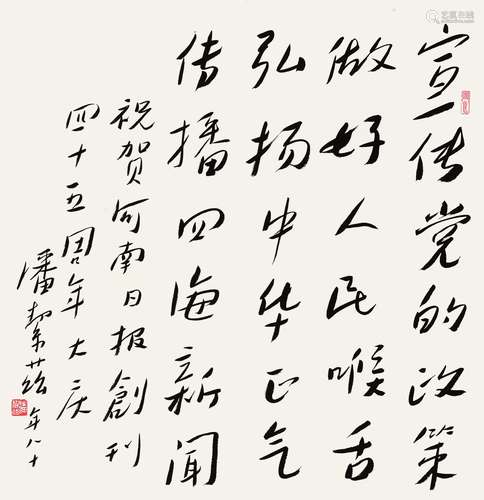 宣传党的政策
做好人民喉舌
弘扬中华正气
传播四海新闻
祝贺河南日报創刊
四十五周年大庆
潘絜茲 年八十